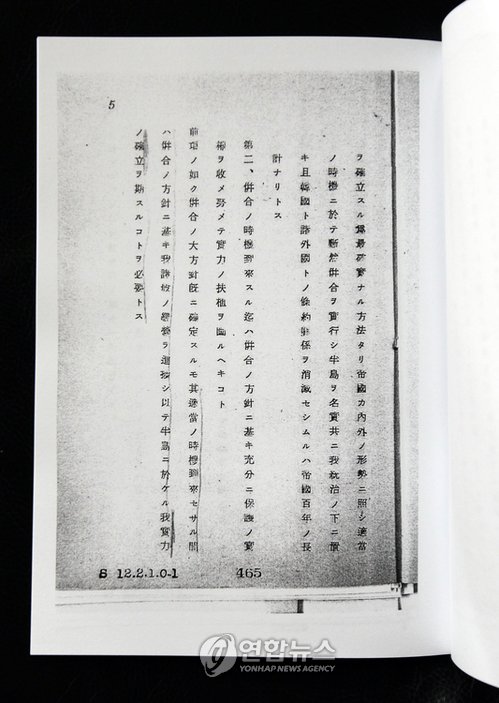 5
ヲ確立スル爲最確實ナル方法タリ帝國カ內外ノ形勢ニ照シ適當
ノ時機ニ於テ斷然併合ヲ實行シ半島ヲ名實共ニ我統治ノ下ニ置
キ且韓國ト諸外國トノ條約關係ヲ消滅セシムルハ帝國百年ノ長
計ナリトス
第二、併合ノ時機到來スル迄ハ併合ノ方針ニ基キ充分ニ保護ノ實
權ヲ收メ努メテ實力ノ扶植ヲ圖ルヘキコト
前項ノ如ク併合ノ大方針旣ニ確定スルモ其適當ノ時機到來セサル間
ハ併合ノ方針ニ基キ我諸般ノ經營ヲ進捗シ以テ半島ニ於ケル我實力
ノ確立ヲ期スルコトヲ必要トス
S 12.2.1.0-1
465
연합뉴스
YONHAP NEWS AGENCY